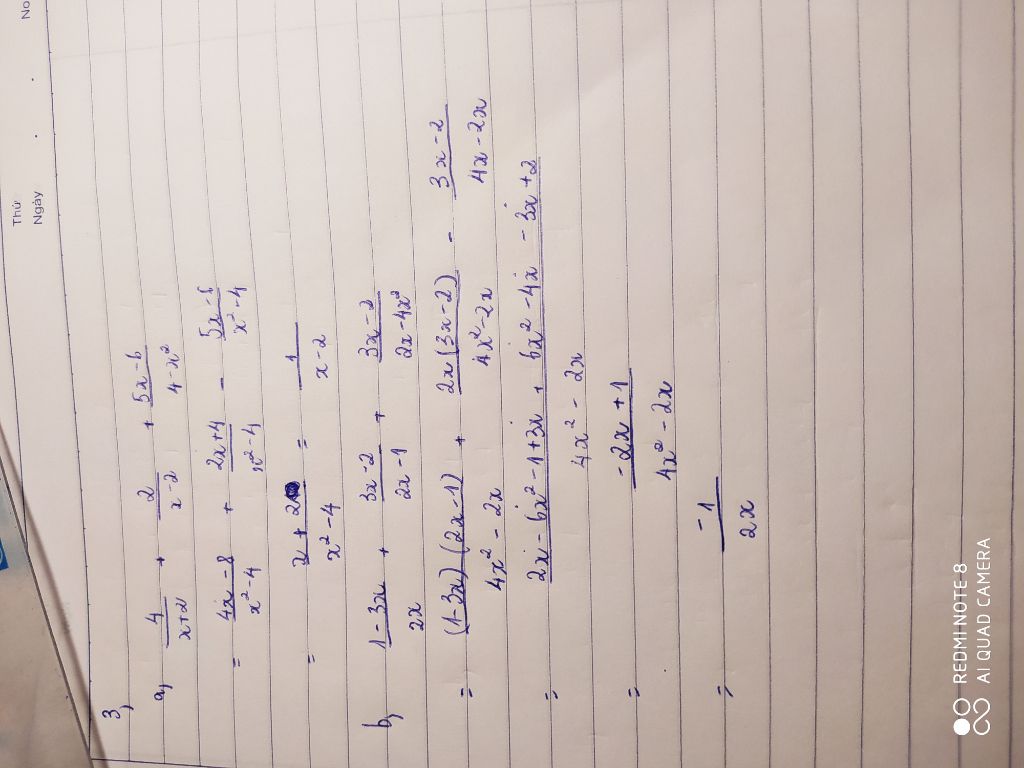 Thứ
Ngày
No
3,
a, 4/(x+2) + 2/(x-2) + (5x-6)/(4-x²)
= (4x-8)/(x²-4) + (2x+4)/(x²-4) - (5x-6)/(x²-4)
= (x+2)/(x²-4) = 1/(x-2)
b, (1-3x)/(2x) + (3x-2)/(2x-1) + (3x-2)/(2x-4x²)
= ((1-3x)(2x-1))/(4x²-2x) + (2x(3x-2))/(4x²-2x) - (3x-2)/(4x-2x)
= (2x-6x²-1+3x+6x²-4x-3x+2)/(4x²-2x)
= (-2x+1)/(4x²-2x)
= (-1)/(2x)
REDMI NOTE 8
AI QUAD CAMERA